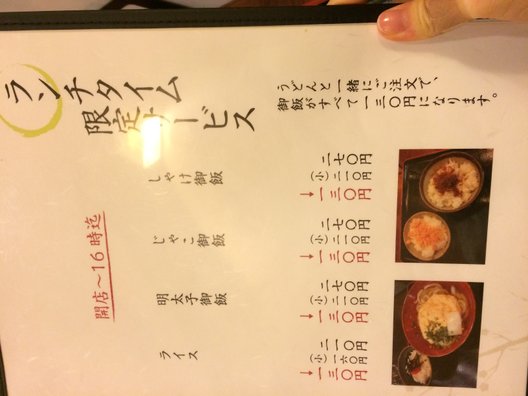 ランチタイム
限定サービス
うどんと一緒にご注文で、
御飯がすべて一三〇円になります。
しゃけ御飯
二七〇円
(小)二一〇円
→一三〇円
じゃこ御飯
二七〇円
(小)二一〇円
→一三〇円
明太子御飯
二七〇円
(小)二一〇円
→一三〇円
ライス
二一〇円
(小)一六〇円
→一三〇円
開店〜16時迄